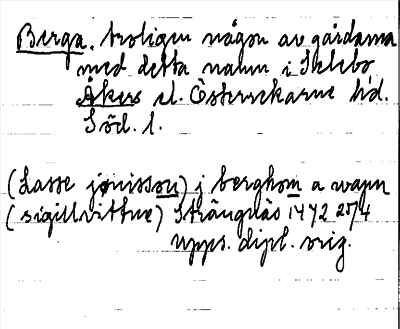 Berga. troligen någon av gårdarna
med detta namn i Sklebo
Åkers el. Österrekarne hd.
Södl.
(Lasse jønissøn) j berghom a wapn
(sigillvittne) Strängnäs 1472 25/4
Upps. dipl. orig.